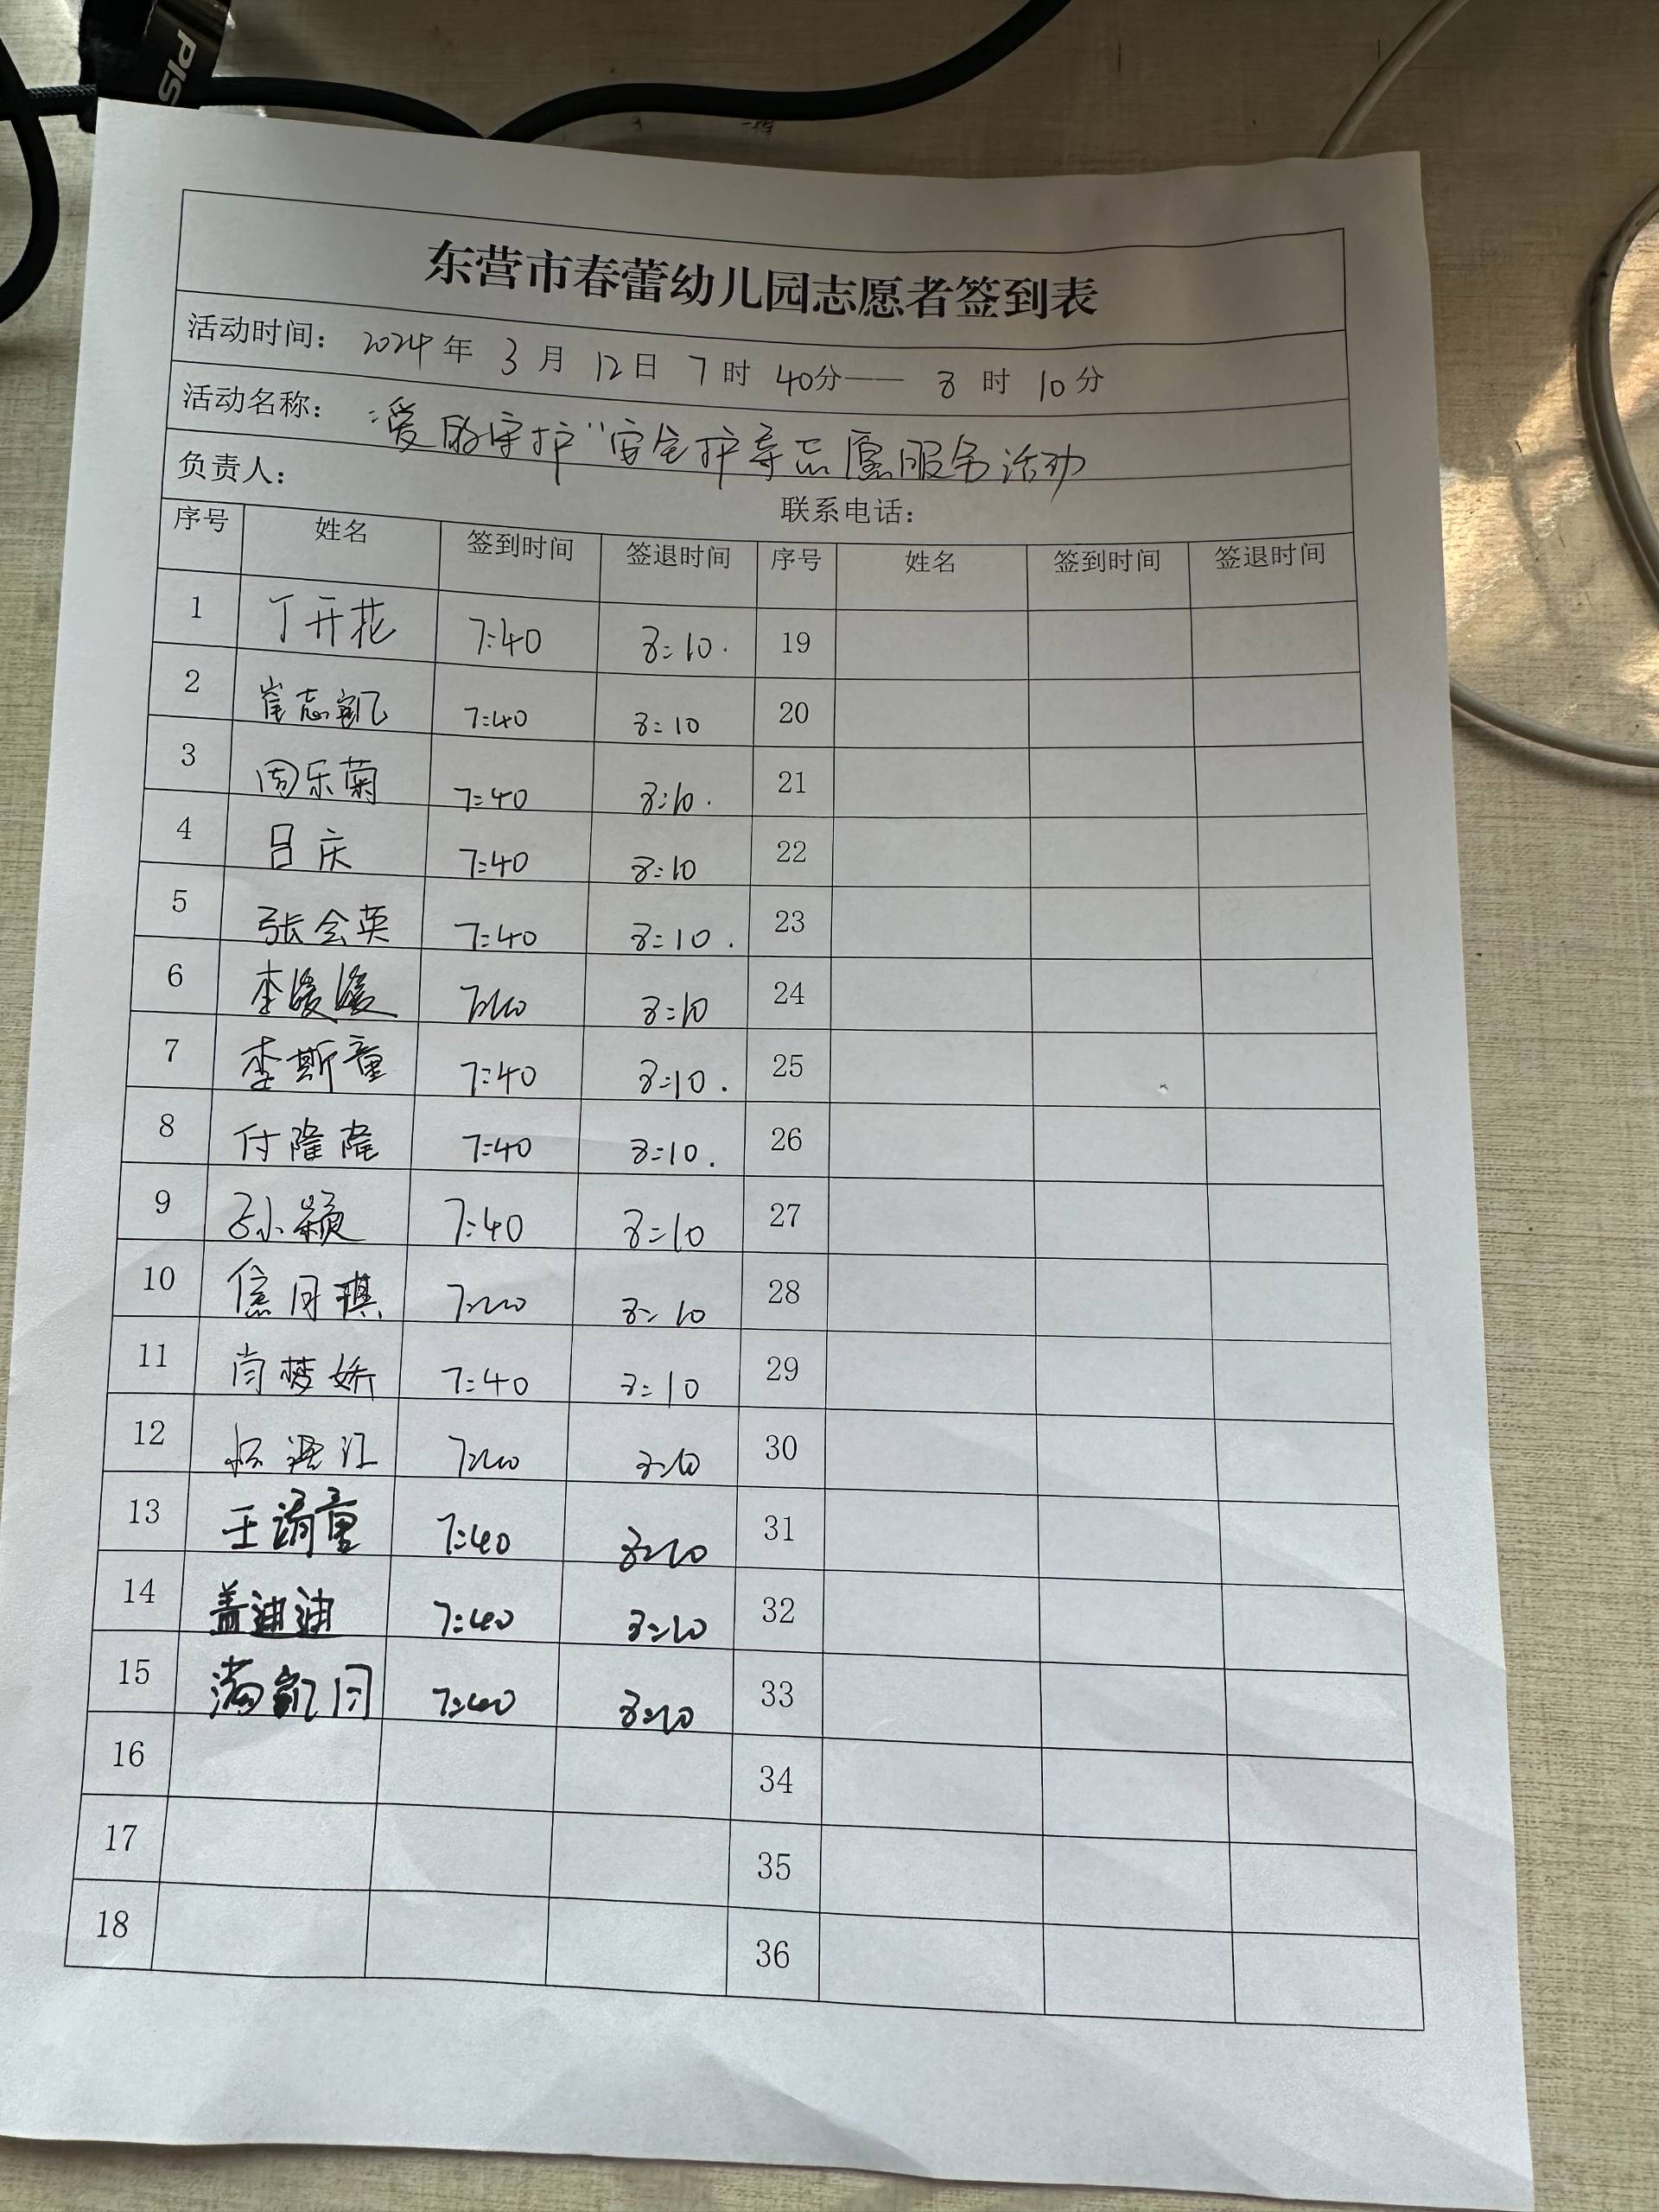 PIS
东营市春蕾幼儿园志愿者签到表
活动时间： 2024 年 3 月 12 日 7 时 40 分—— 8 时 10 分
活动名称： “爱的守护”安全护导志愿服务活动
负责人： 联系电话：
序号 姓名 签到时间 签退时间 序号 姓名 签到时间 签退时间
1 丁开花 7:40 8:10. 19
2 崔志凯 7:40 8:10 20
3 周乐菊 7:40 8:10. 21
4 吕庆 7:40 8:10 22
5 张会英 7:40 8:10. 23
6 李媛媛 7:40 8:10 24
7 李斯童 7:40 8:10. 25
8 付隆隆 7:40 8:10. 26
9 孙颖 7:40 8:10 27
10 信月琪 7:40 8:10 28
11 肖梦娇 7:40 8:10 29
12 7:40 8:10 30
13 王靖童 7:40 8:10 31
14 盖迪迪 7:40 8:10 32
15 满凯月 7:40 8:10 33
16 34
17 35
18 36